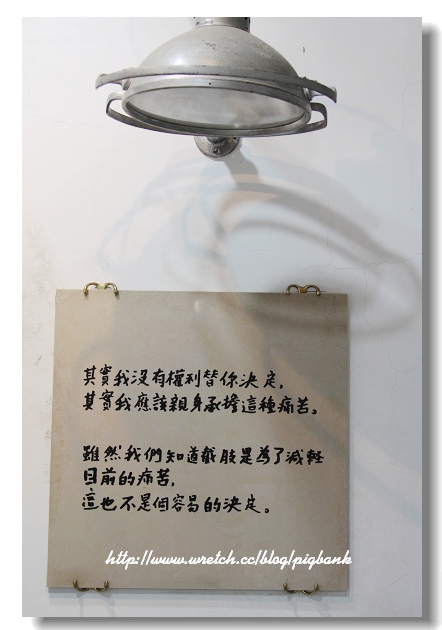 其實我沒有權利替你決定,
其實我應該親身承擔這種痛苦。
雖然我們知道截肢是為了減輕
目前的痛苦,
這也不是個容易的決定。
http://www.wretch.cc/blog/pigbank